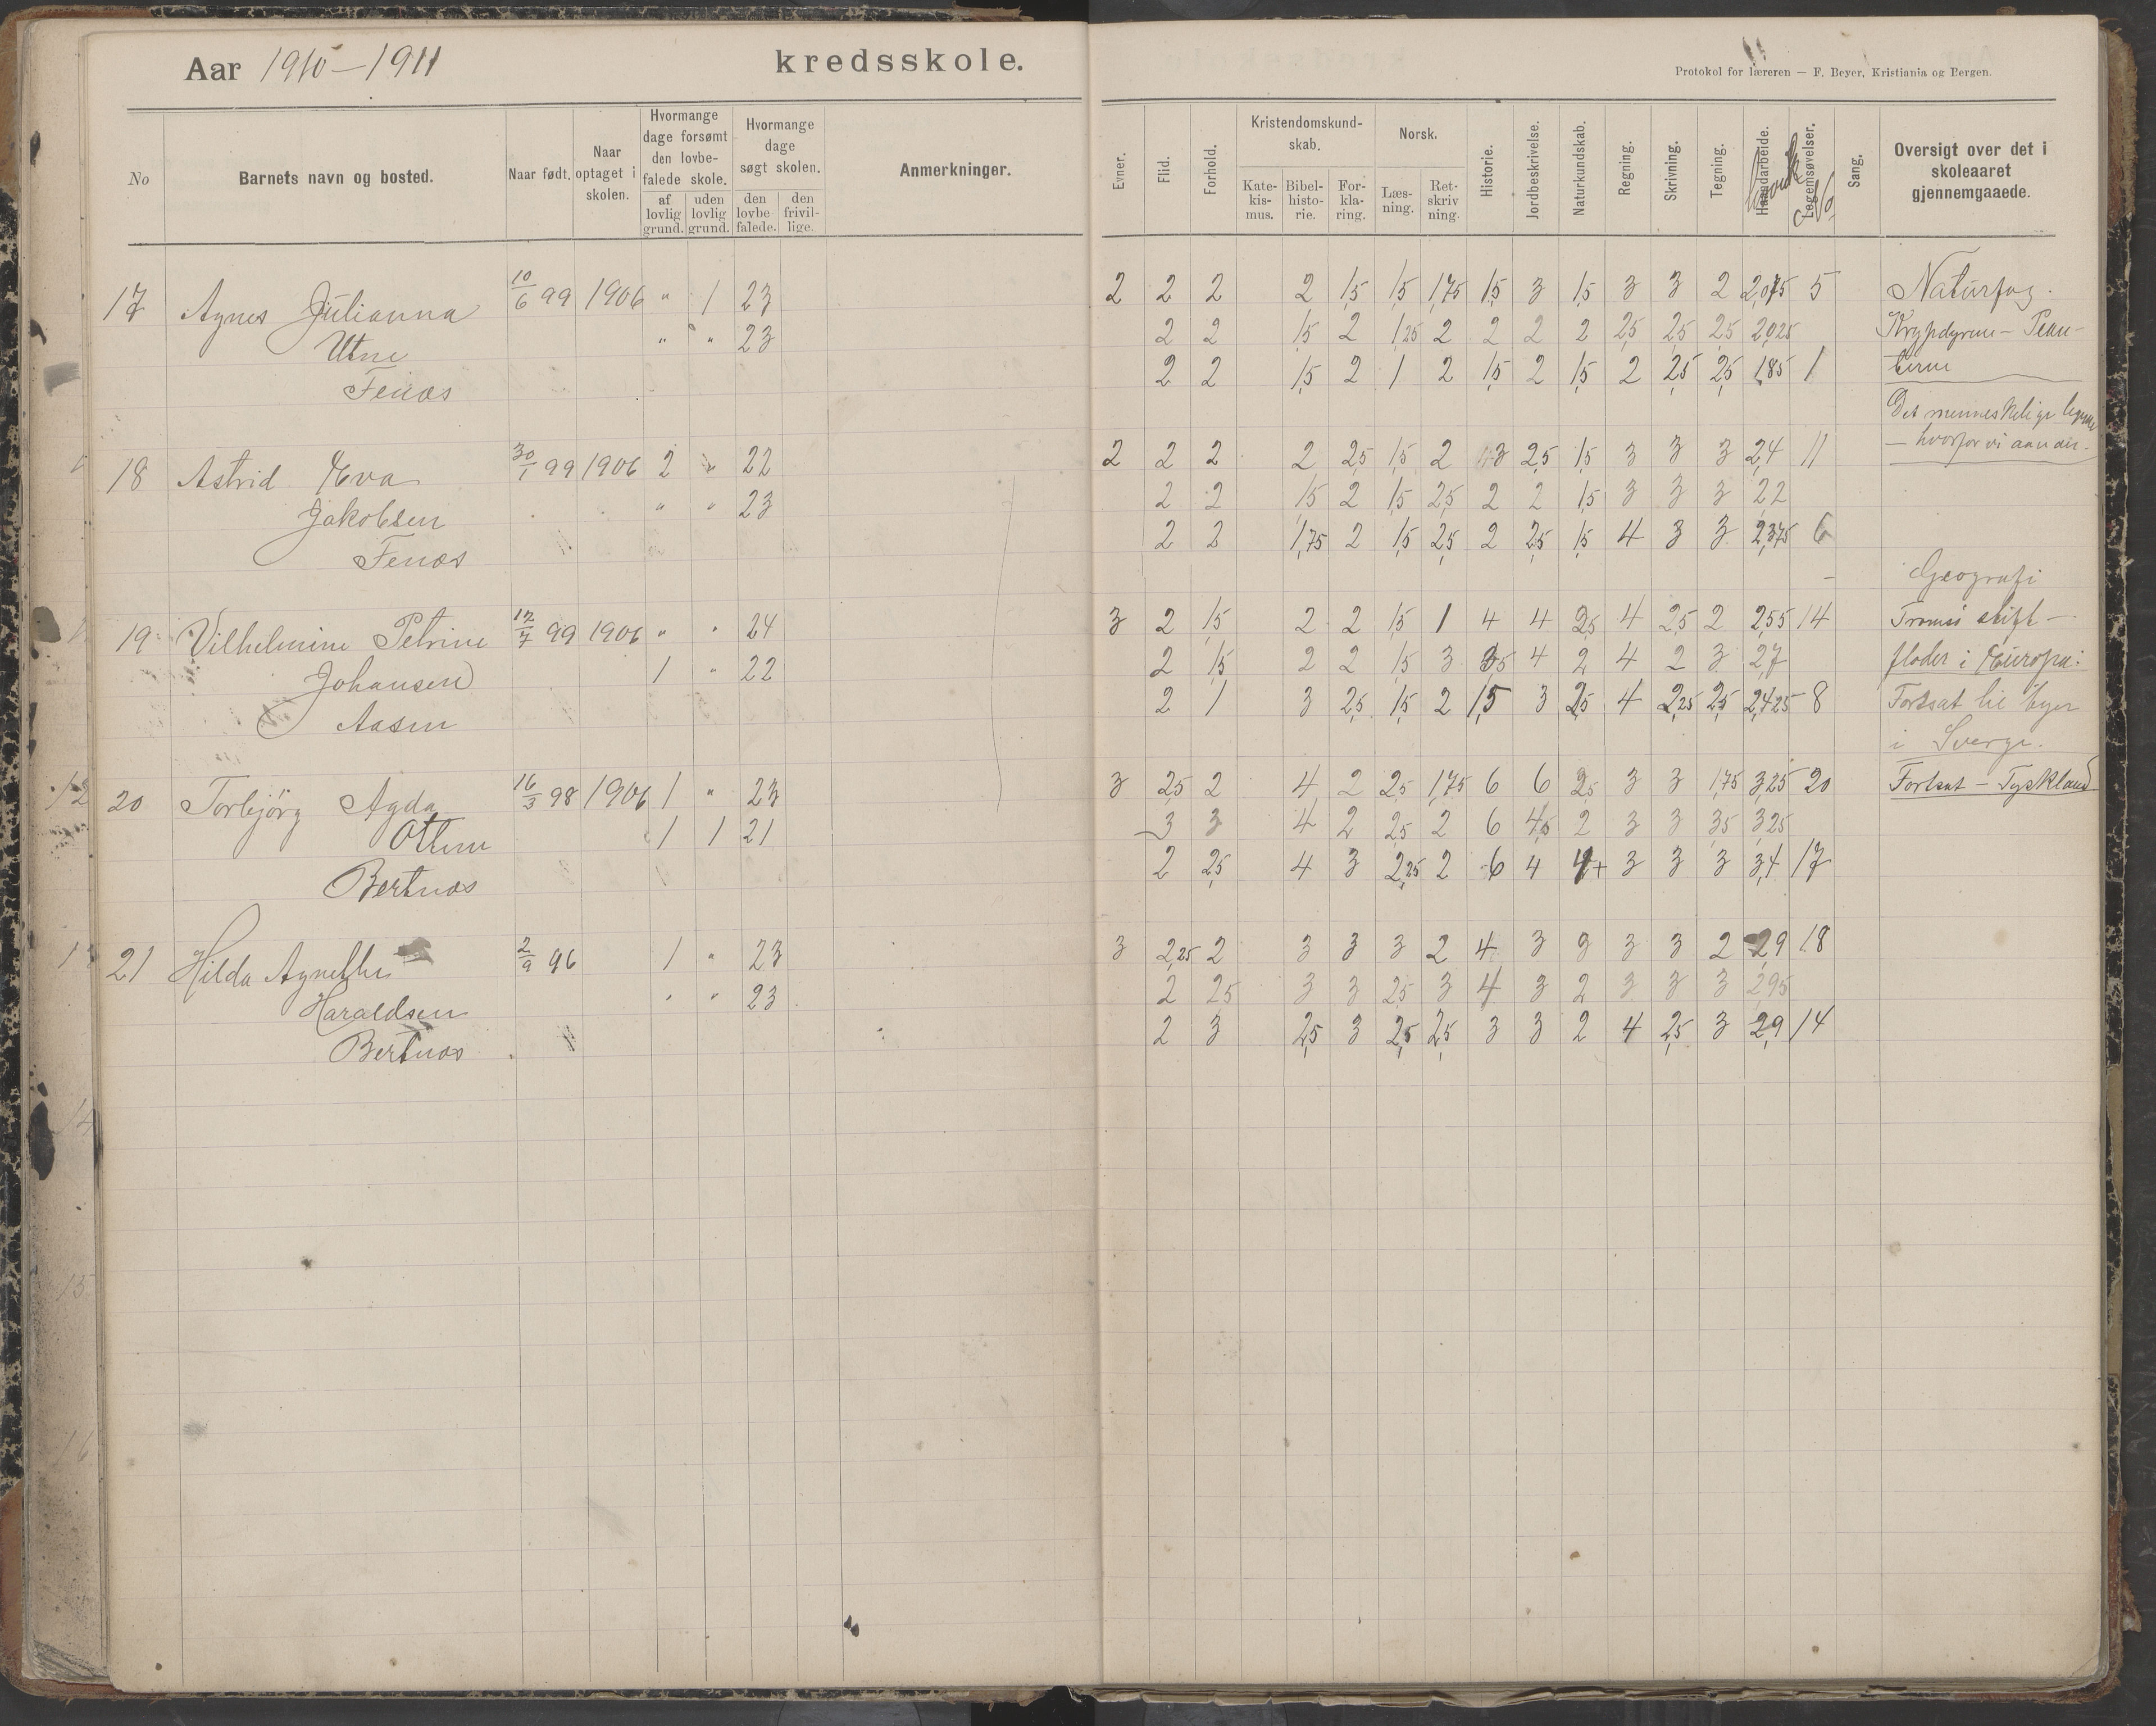 Aar 1910-1911 kredsskole.
Protokol for læreren — F. Beyer, Kristiania og Bergen.
No Barnets navn og bosted. Naar født. Naar optaget i skolen. Hvormange dage forsømt den lovbefalede skole. af lovlig grund. uden lovlig grund. Hvormange dage søgt skolen. den lovbefalede. den frivillige. Anmerkninger.
Evner. Flid. Forhold. Kristendomskundskab. Katekismus. Bibelhistorie. Forklaring. Norsk. Læsning. Retskrivning. Historie. Jordbeskrivelse. Naturkundskab. Regning. Skrivning. Tegning. Haandarbeide. Legemsøvelser. Sang. Oversigt over det i skoleaaret gjennemgaaede.
17 Agnes Julianna 10/6 99 1906 " 1 23 2 2 2 2 1,5 1,5 1,75 1,5 3 1,5 3 3 2 2,075 5 Naturfag.
Utne " " 23 2 2 1,5 2 1,25 2 2 2 2 2,5 2,5 2,5 2,025 Krypdyrene - Plan-
Fenes 2 2 1,5 2 1 2 1,5 2 1,5 2 2,5 2,5 1,85 1 terne
Det menneskelige legeme
18 Astrid Eva 30/1 99 1906 2 " 22 2 2 2 2 2,5 1,5 2 3 2,5 1,5 3 3 3 2,4 11 — hvorfor vi aander.
Jakobsen " " 23 2 2 1,5 2 1,5 2,5 2 2 1,5 3 3 3 2,2
Fenes 2 2 1,75 2 1,5 2,5 2 2,5 1,5 4 3 3 2,375 6
Geografi
19 Vilhelmine Petrine 12/7 99 1906 " " 24 3 2 1,5 2 2 1,5 1 4 4 2,5 4 2,5 2 2,55 14 Tromsø stift —
Johansen 1 " 22 2 1,5 2 2 1,5 3 4 2 4 2 3 2,7 floder i Europa.
Aasen 2 1 3 2,5 1,5 2 1,5 3 2,5 4 2,25 2,5 2,425 8 Fortsat til byer
i Sverge.
20 Torbjörg Agda 16/3 98 1906 1 " 23 3 2,5 2 4 2 2,5 1,75 6 6 2,5 3 3 1,75 3,25 20 Fortsat - Tyskland
Ottem 1 1 21 3 3 4 2 2,5 2 6 4,5 2 3 3 3,5 3,25
Bertnes 2 2,5 4 3 2,25 2 6 4 4+ 3 3 3 3,4 17
21 Hilda Agnethe 2/9 96 1 " 23 3 2,25 2 3 3 3 2 4 3 3 3 3 2 2,9 18
Haraldsen " " 23 2 2,5 3 3 2,5 3 4 3 2 3 3 3 2,95
Bertnes 2 3 2,5 3 2,5 2,5 3 3 2 4 2,5 3 2,9 14